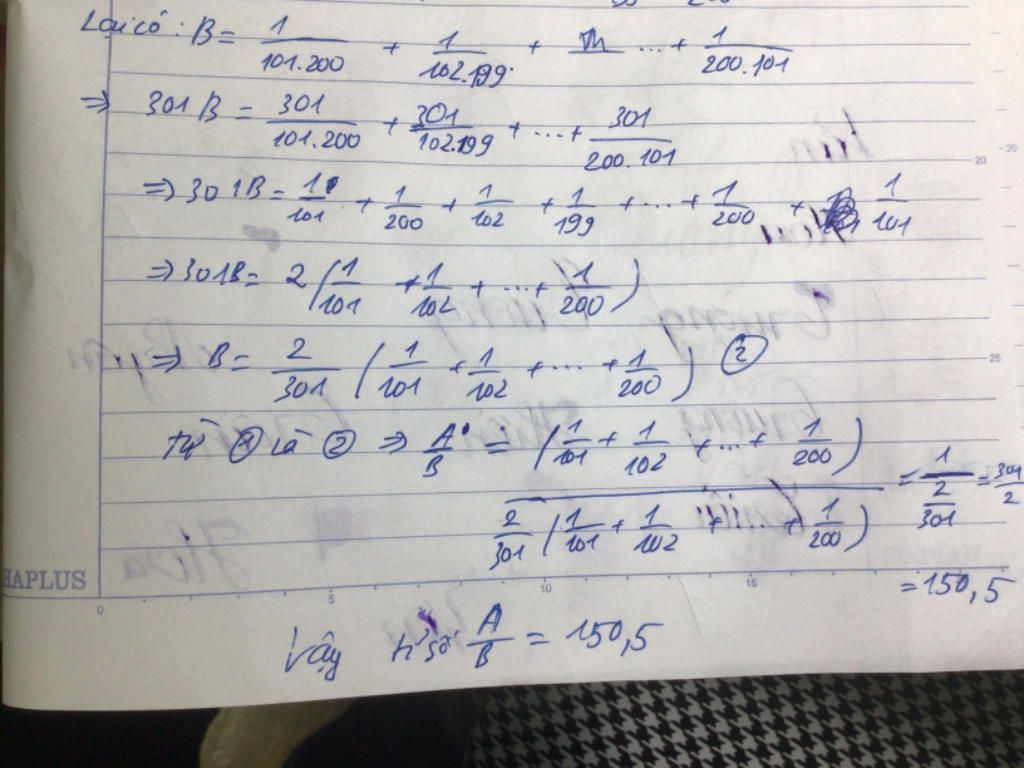 Lại có: B = 1/101.200 + 1/102.199 + ... + 1/200.101
=> 301B = 301/101.200 + 301/102.199 + ... + 301/200.101
=> 301B = 1/101 + 1/200 + 1/102 + 1/199 + ... + 1/200 + 1/101
=> 301B = 2(1/101 + 1/102 + ... + 1/200)
=> B = 2/301 (1/101 + 1/102 + ... + 1/200) ②
Từ ① và ② => A/B = (1/101 + 1/102 + ... + 1/200) / 2/301 (1/101 + 1/102 + + 1/200) = 1/(2/301) = 301/2
= 150,5
HAPLUS
0 5 10 15 20 25
Vậy tỉ số A/B = 150,5